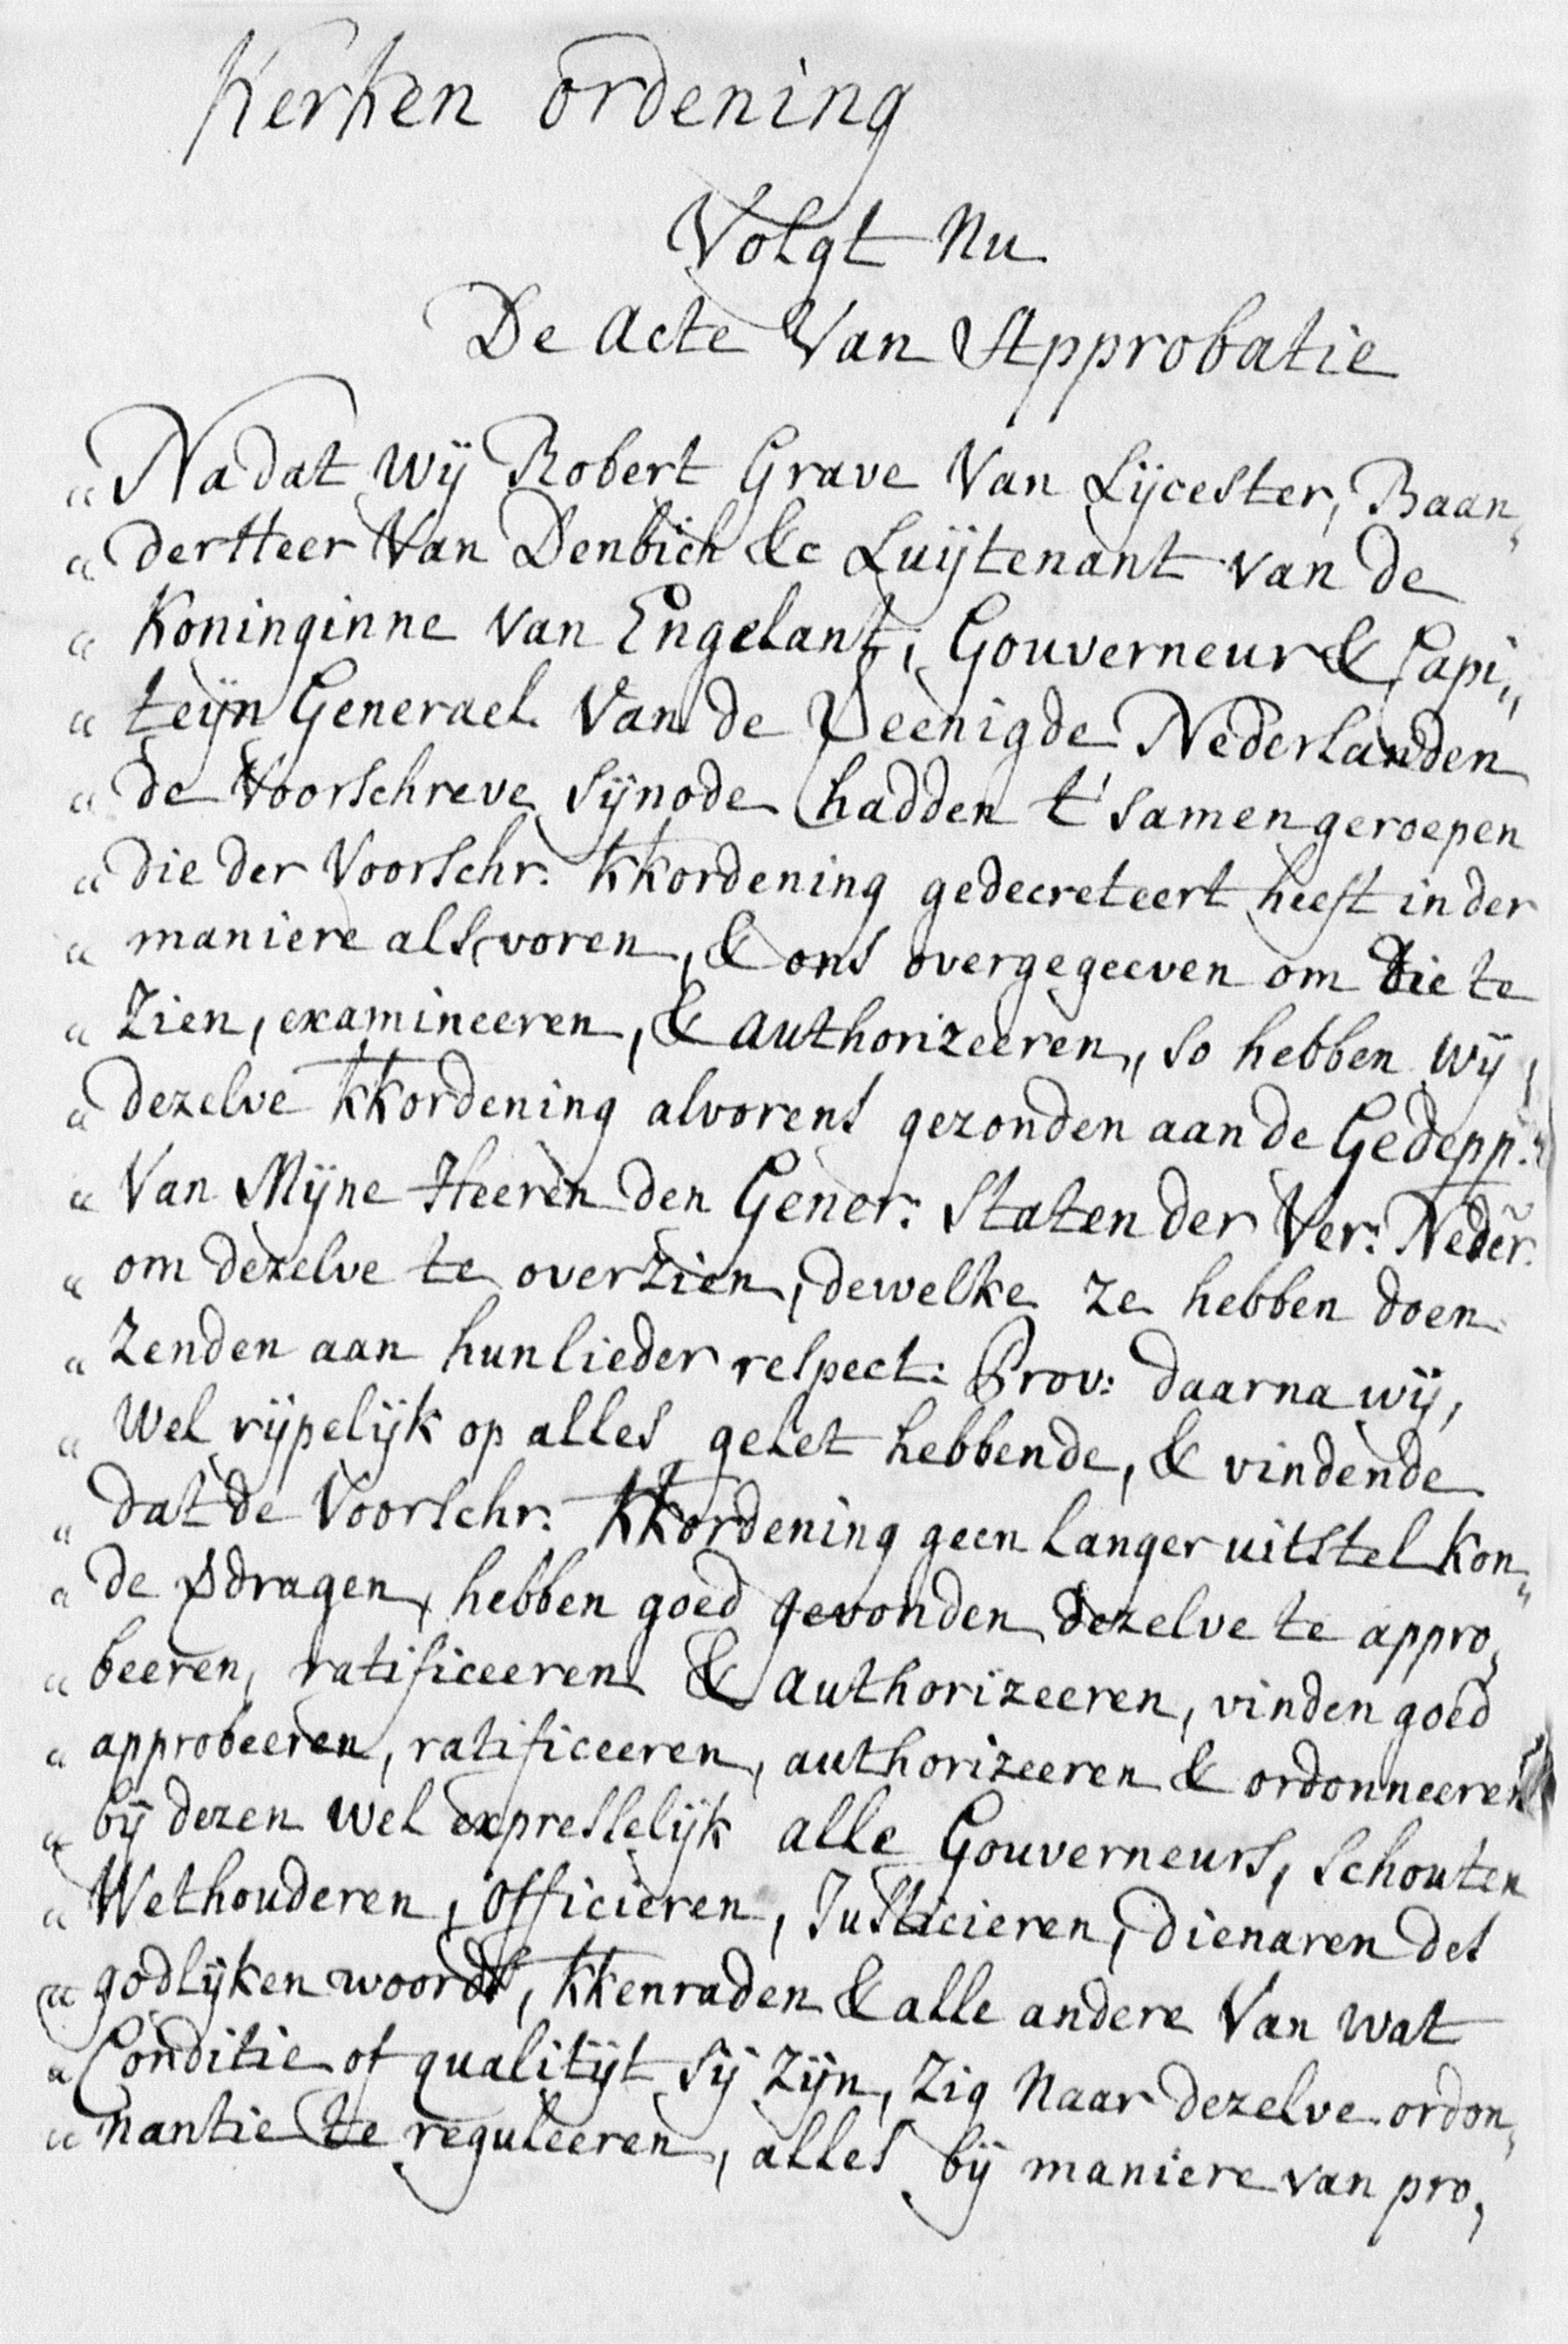 Kerken ordening
Volgt Nu
De Acte Van Approbatie
„ Nadat wij Robert Grave Van Lijcester, Baan„
„ derHeer Van Denbich &c Luijtenant van de
„ Koninginne Van Engelant, Gouverneur & Capi„
„ teijn Generael Van de Veenigde Nederlanden
„ de Voorschreve Sijnode hadden t'samen geroepen
„ die der Voorschr: kkordening gedecreteert heeft in der
„ maniere als voren, & ons overgegeeven om die te
„ Zien, examineeren, & authorizeeren, so hebben wij,
„ dezelve kkordening alvorens gezonden aan de Gedepp:
„ Van Mijne Heeren den Gener: Staten der Ver: Neder.
„ om dezelve te overzien, dewelke ze hebben doen
„ Zenden aan hunlieder respect: Prov: daarna wij,
„ Wel rijpelijk op alles gelet hebbende, & vindende
„ dat de Voorschr: kkordening geen langer uitstel kon„
„ de Vdragen, hebben goed gevonden dezelve te appro„
„ beeren, ratificeeren & authorizeeren, vinden goed
„ approbeeren, ratificeeren, authorizeeren & ordonneeren
„ bij dezen wel expresselijk alle Gouverneurs, Schouten
„ Wethouderen, Officieren, Justicieren, dienaren des
„ godlijken woords, kkenraden & alle andere Van wat
„ Conditie of qualitijt sij zijn, Zig Naar dezelve ordon„
„ nantie te reguleeren, alles bij maniere van pro„